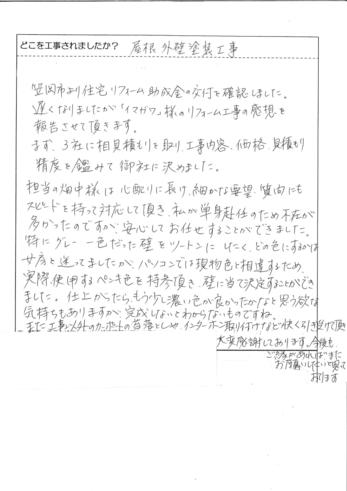 どこを工事されましたか? 屋根 外壁塗装工事
笠岡市より住宅リフォーム助成金の交付を確認しました。
遅くなりましたが「イマガワ」様のリフォーム工事の感想を
報告させて頂きます。
まず、3社に相見積もりを取り、工事内容、価格、見積もり
精度を鑑みて御社に決めました。
担当の畑中様は心配りに長け、細かな要望、質問にも
スピードを持って対応して頂き、私が単身赴任のため不在が
多かったのですが、安心してお任せすることができました。
特にグレー一色だった壁をツートンに いたく、どの色にするかは
女房と迷ってましたが、パソコンでは現物色と相違するため、
実際使用するペンキ色を持参頂き、壁に当て決定することができ
ました。仕上がったら、もう少し濃い色が良かったかなと思う欲な
気持ちもありますが、完成しないとわからないものですね。
また工事以外のカーポートの苔落としや、インターホン取り付けなど快くお引き受けて頂き
大変感謝しております。今後も
ご縁があればまた
お願いしたいと思って
おります